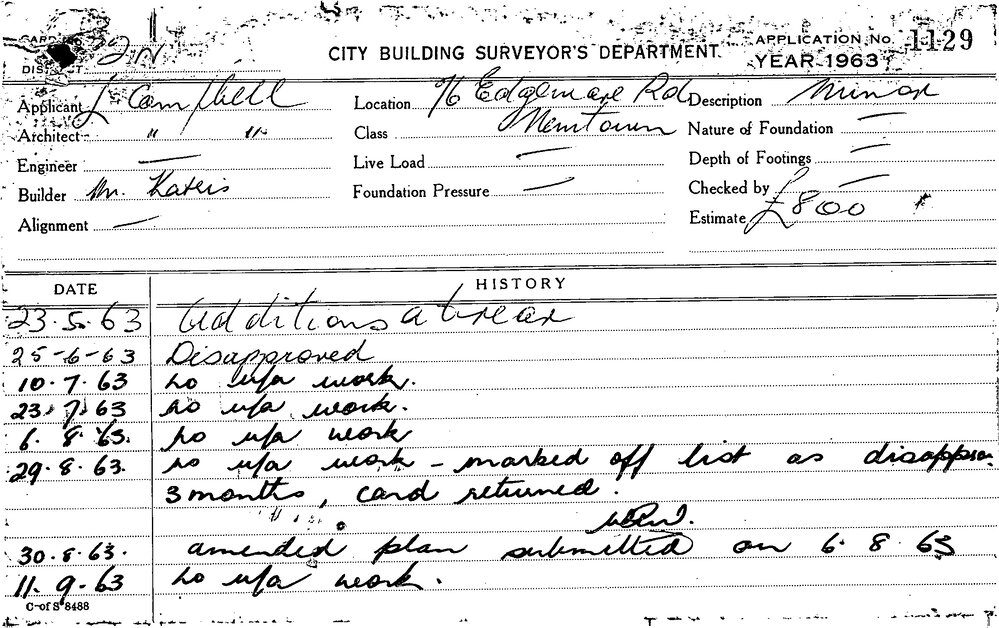 CARD No.
DISTRICT
CITY BUILDING SURVEYOR'S DEPARTMENT.
APPLICATION No. 1129
YEAR 1963
Applicant L Campbell
Location 76 Edgeware Rd
Description Minor
Architect " "
Class Newtown
Nature of Foundation —
Engineer —
Live Load —
Depth of Footings —
Builder Mr. Kateis
Foundation Pressure —
Checked by —
Alignment —
Estimate £800
DATE HISTORY
23.5.63 Additions at rear
25-6-63 Disapproved
10.7.63 no u/a work.
23.7.63 no u/a work.
6.8.63. no u/a work
29.8.63. no u/a work - marked off list as disappro.
3 months, card returned.
30.8.63. amended plan submitted on 6.8.63
11.9.63 no u/a work.
C-of S 8488